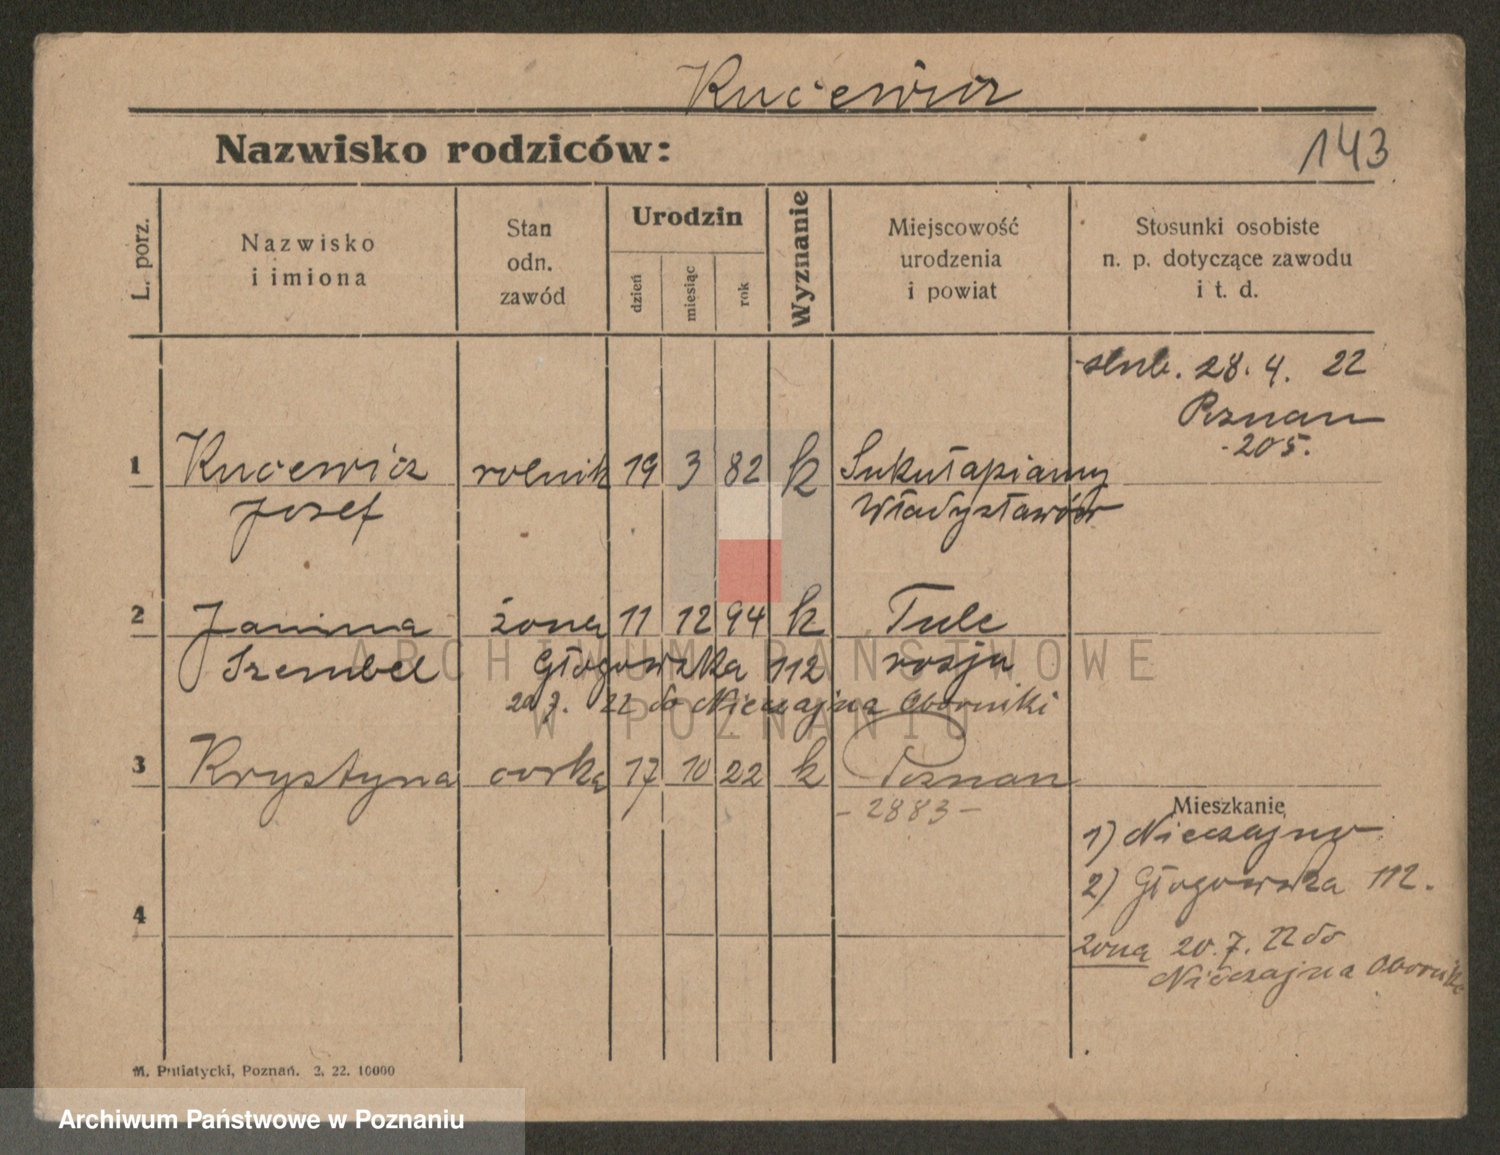 Kucewicz
Nazwisko rodziców:
143
L. porz.
Nazwisko i imiona
Stan odn. zawód
Urodzin
dzień
miesiąc
rok
Wyznanie
Miejscowość urodzenia i powiat
Stosunki osobiste n. p. dotyczące zawodu i t. d.
slub. 28. 4. 22
Poznan
-205.
1 Kucewicz rolnik 19 3 82 k
Josef Władysławów
2 Janina żona 11 12 94 k Tule
Szembel Głogowska 112 rosja
20 7. 22 do Nieczajna Oborniki
3 Krystyna corka 17 10 22 k Poznan
- 2883 -
Mieszkanie
1) Nieczajno
2) Głogowska 112.
4
zona 20. 7. 22 do
Nieczajna Oborniki
M. Putiatycki, Poznań. 3, 22. 10000
ARCHIWUM PAŃSTWOWE
W POZNANIU
Archiwum Państwowe w Poznaniu